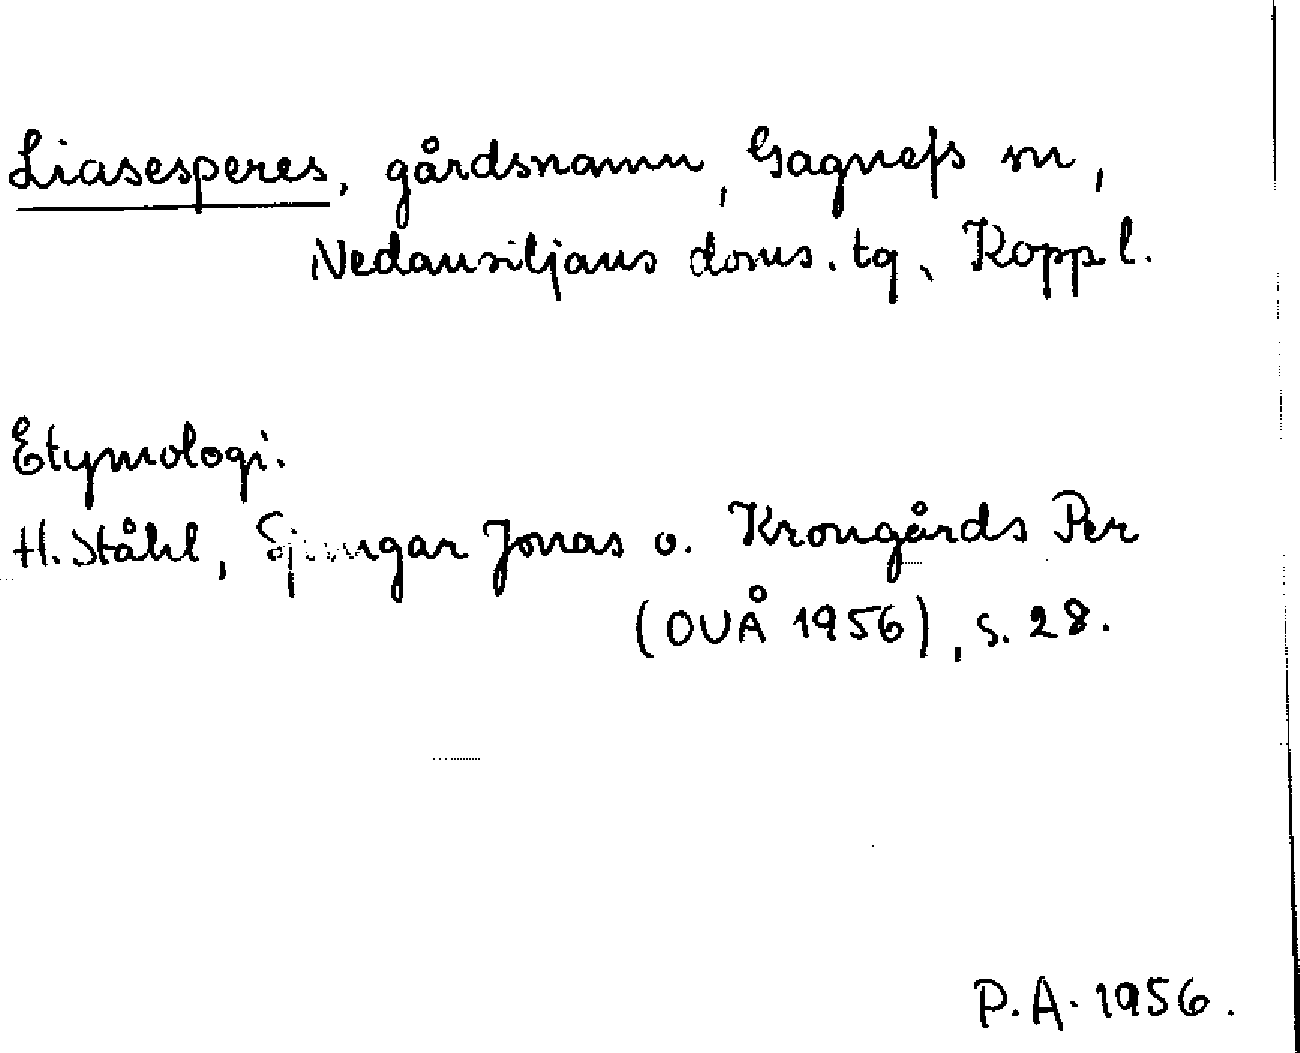 Liasesperes, gårdsnamn, Gagnefs sn,
Nedansiljans doms. tg, Kopp l.
Etymologi.
H. Ståhl, Spingar Jonas o. Krongårds Per
(OUÅ 1956), s. 28.
P.A. 1956.